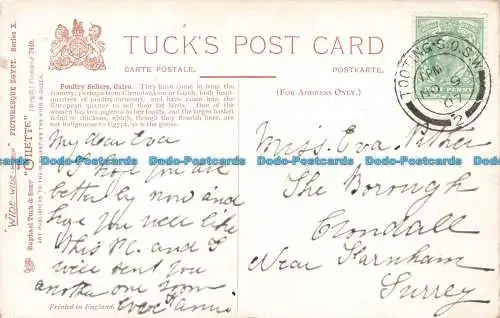 TUCK'S POST CARD
CARTE POSTALE.
POSTKARTE.
Poultry Sellers, Cairo. They have come from the
country, perhaps from Ghesireh or Gizeh, with head-
quarters of poultry-farmers, and have come into the
European quarter to sell their fat birds. One of the
women has two pigeons in her hands, and the larger basket
is full of chickens, which, though they flourish here, are
not indigenous to Egypt, as is the goose.
(FOR ADDRESS ONLY.)
My dear Eva
I hope you are
better by now and
hope you will like
this P.C. and I
will send you
another one soon
love Annie
Miss. Eva
The Borough
Crondall
Near Farnham
Surrey
Printed in England.
"WIDE-WIDE-WORLD" PICTURESQUE EGYPT. Series I.
"OILETTE" (Regd.) Postcard
Raphael Tuck & Sons'
ART PUBLISHERS TO THEIR MAJESTIES THE KING & QUEEN.
TOOTING S.O. S.W.
HALF PENNY
Dodo-Postcards Dodo-Postcards Dodo-Postcards Dodo-Postcards